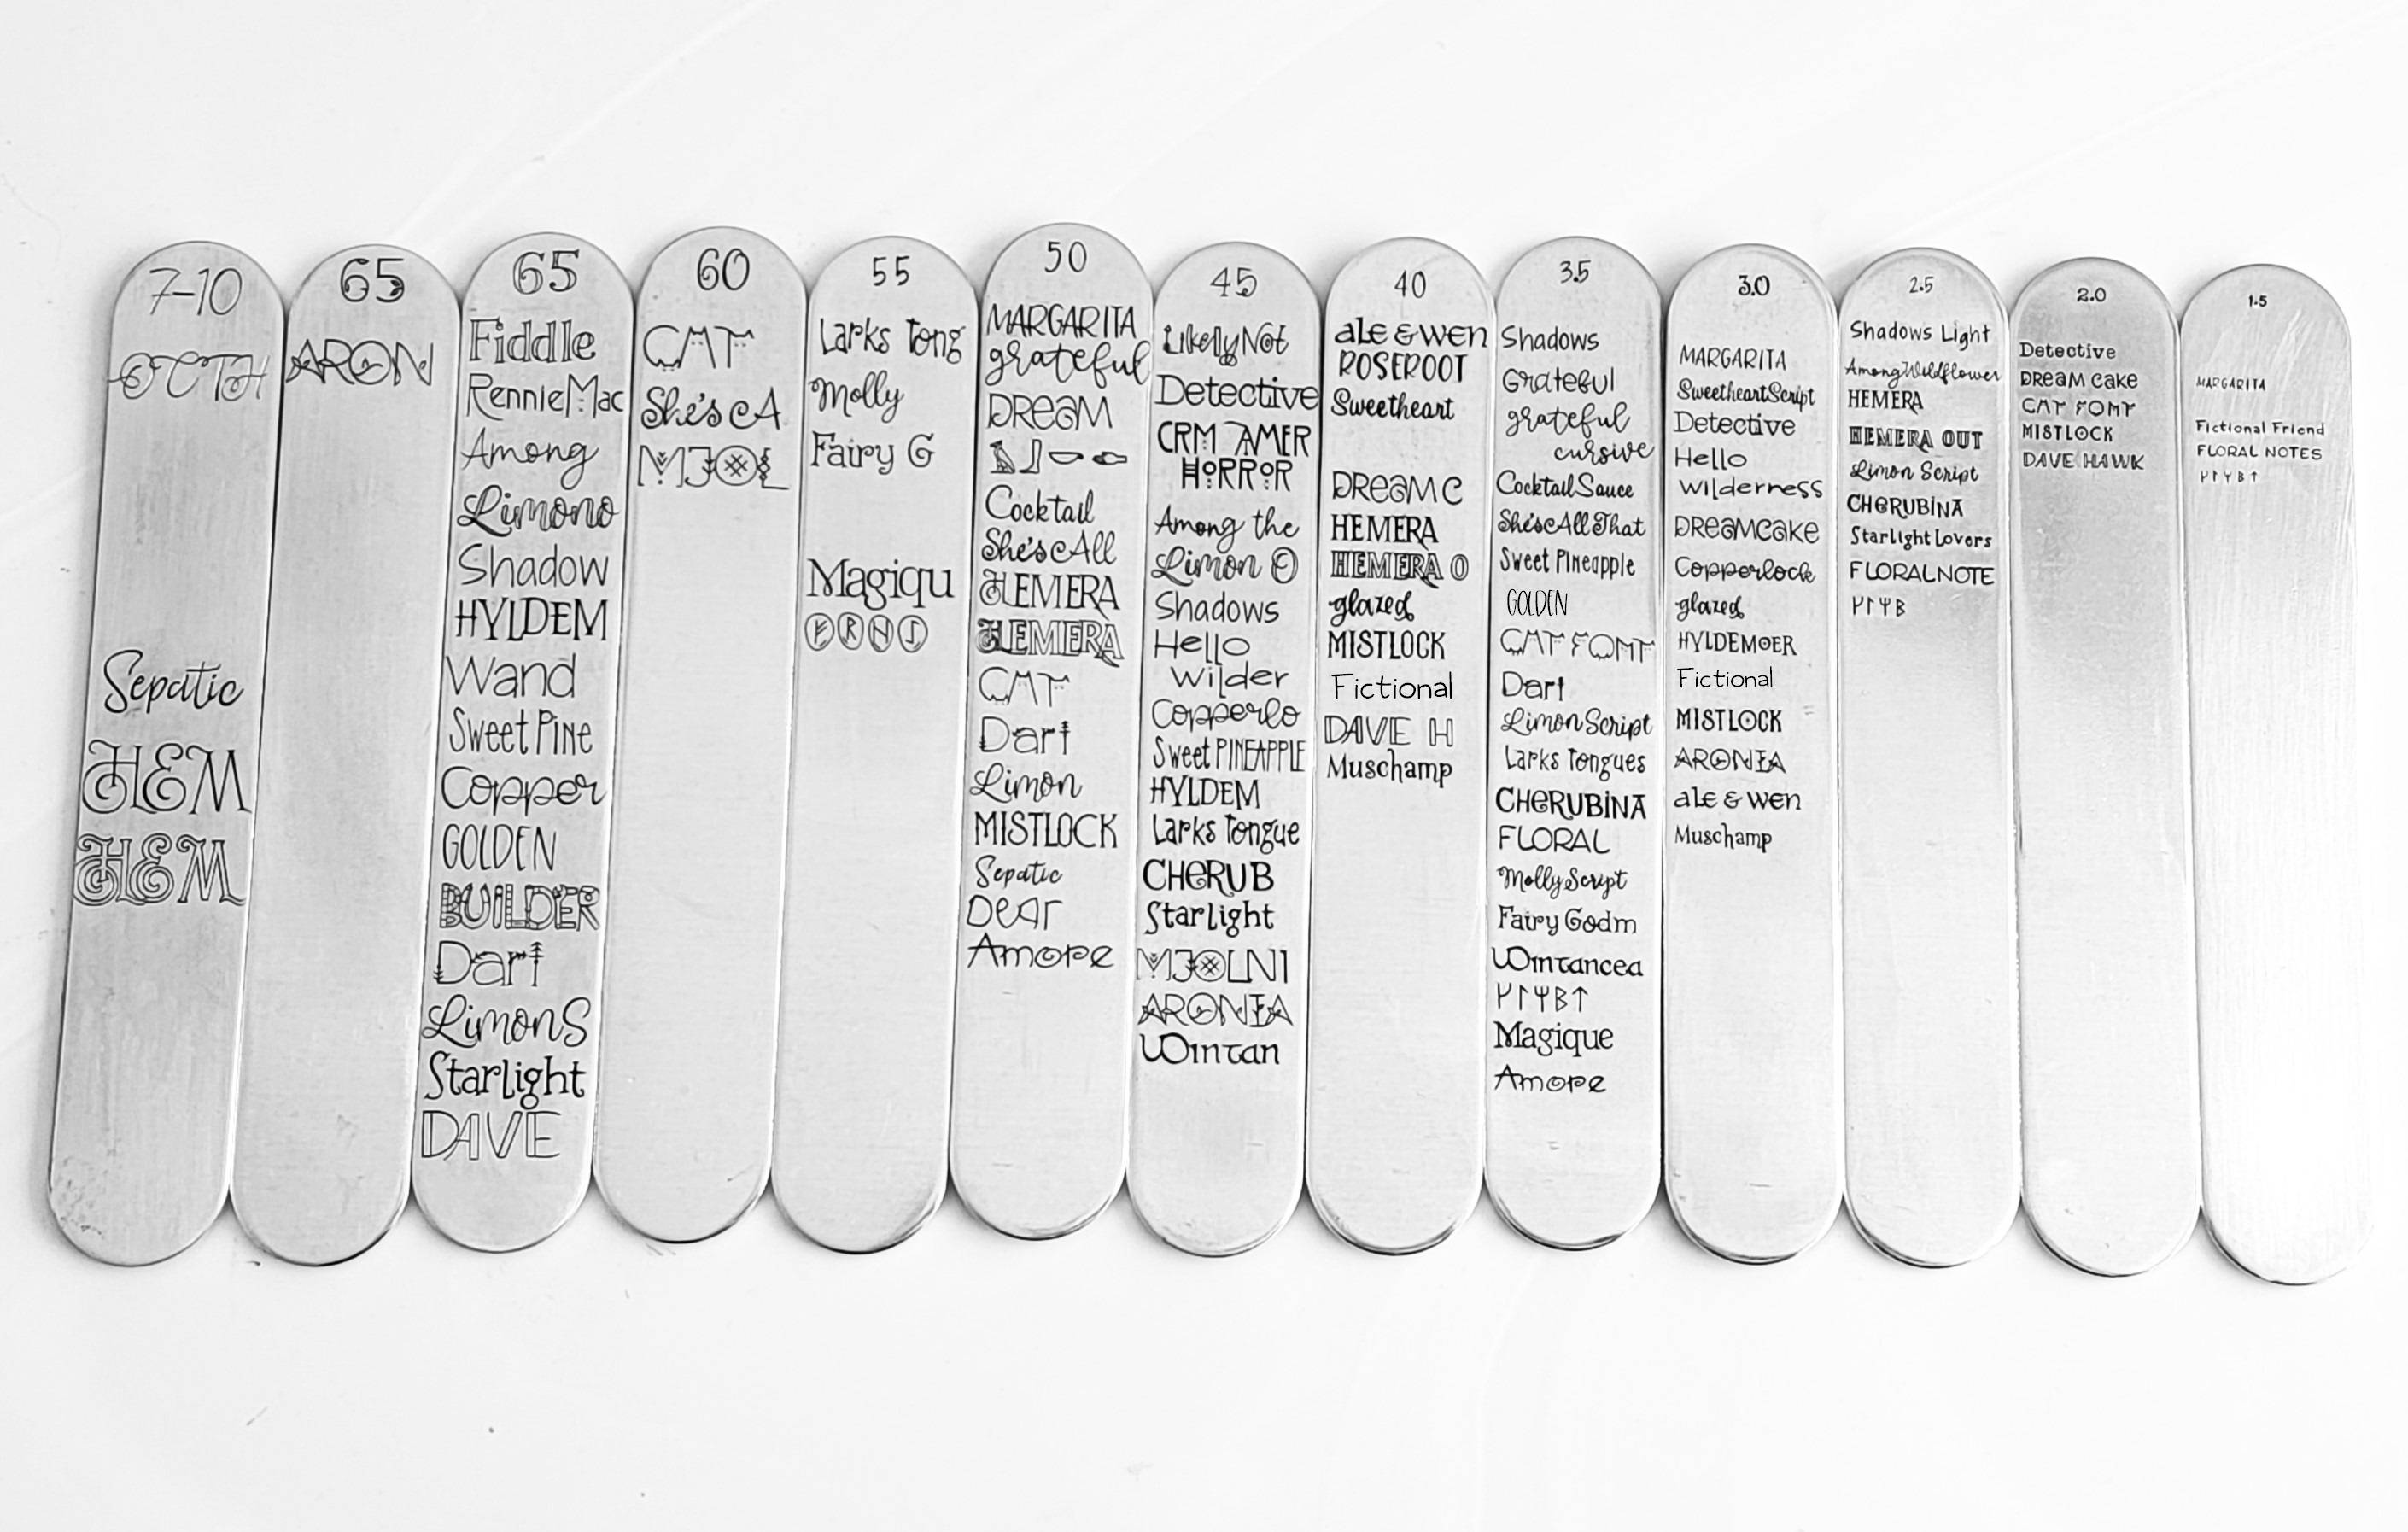 7-10
OCTH
Sepatic
HEM
HEM
65
ARON
65
Fiddle
RennieMac
Among
Limono
Shadow
HYLDEM
Wand
Sweet Pine
Copper
GOLDEN
BUILDER
Dari
LimonS
Starlight
DAVE
60
CAT
She's cA
MJOL
55
Larks Tong
Molly
Fairy G
Magiqu
50
MARGARITA
grateful
DREAM
Cocktail
She's cAll
HEMERA
HEMERA
CAT
Dari
Limon
MISTLOCK
Sepatic
Dear
Amore
45
Likely Not
Detective
CRM AMER
HORROR
Among the
Limon O
Shadows
Hello
Wilder
Copperlo
Sweet PINEAPPLE
HYLDEM
Larks Tongue
CHERUB
Starlight
MJOLNI
ARONIA
Wintan
40
ale & wen
ROSEROOT
Sweetheart
DREAM C
HEMERA
HEMERA O
glazed
MISTLOCK
Fictional
DAVE H
Muschamp
3.5
Shadows
Grateful
grateful
cursive
Cocktail Sauce
She'scAllThat
Sweet Pineapple
GOLDEN
CAT FONT
Dari
Limon Script
Larks Tongues
CHERUBINA
FLORAL
Molly Script
Fairy Godm
Wintancea
ᚴᛚᛘᛒᛏ
Magique
Amore
3.0
MARGARITA
SweetheartScript
Detective
Hello
Wilderness
DREAMCAKE
Copperlock
glazed
HYLDEMOER
Fictional
MISTLOCK
ARONIA
ale & wen
Muschamp
2.5
Shadows Light
AmongWildflower
HEMERA
HEMERA OUT
Limon Script
CHERUBINA
Starlight Lovers
FLORALNOTE
ᚴᛚᛘᛒ
2.0
Detective
DREAM CAKE
CAT FONT
MISTLOCK
DAVE HAWK
1.5
MARGARITA
Fictional Friend
FLORAL NOTES
ᚴᛚᛘᛒᛏ